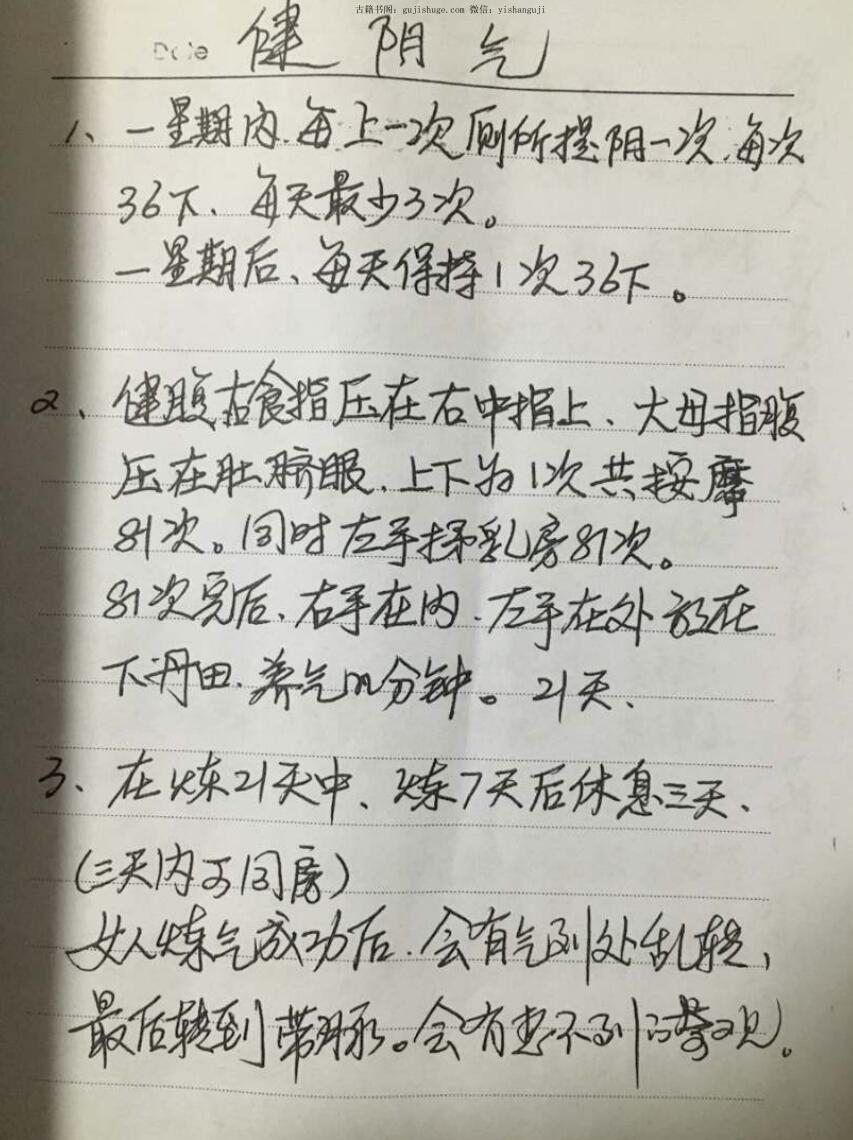 古籍书阁：gujishuge.com 微信：yishanguji
Date 健阴气
1、一星期内、每上一次厕所提阴一次、每次
36下、每天最少3次。
一星期后、每天保持1次36下。
2、健腹右食指压在右中指上、大母指腹
压在肚脐眼、上下为1次共按摩
81次。同时左手揉乳房81次。
81次完后、右手在内、左手在外放在
下丹田、养气 分钟。21天、
3、在炼21天中、炼7天后休息三天、
（三天内可同房）
女人炼气成功后、会有气到处乱转、
最后转到带脉。会有想不到的奇观。